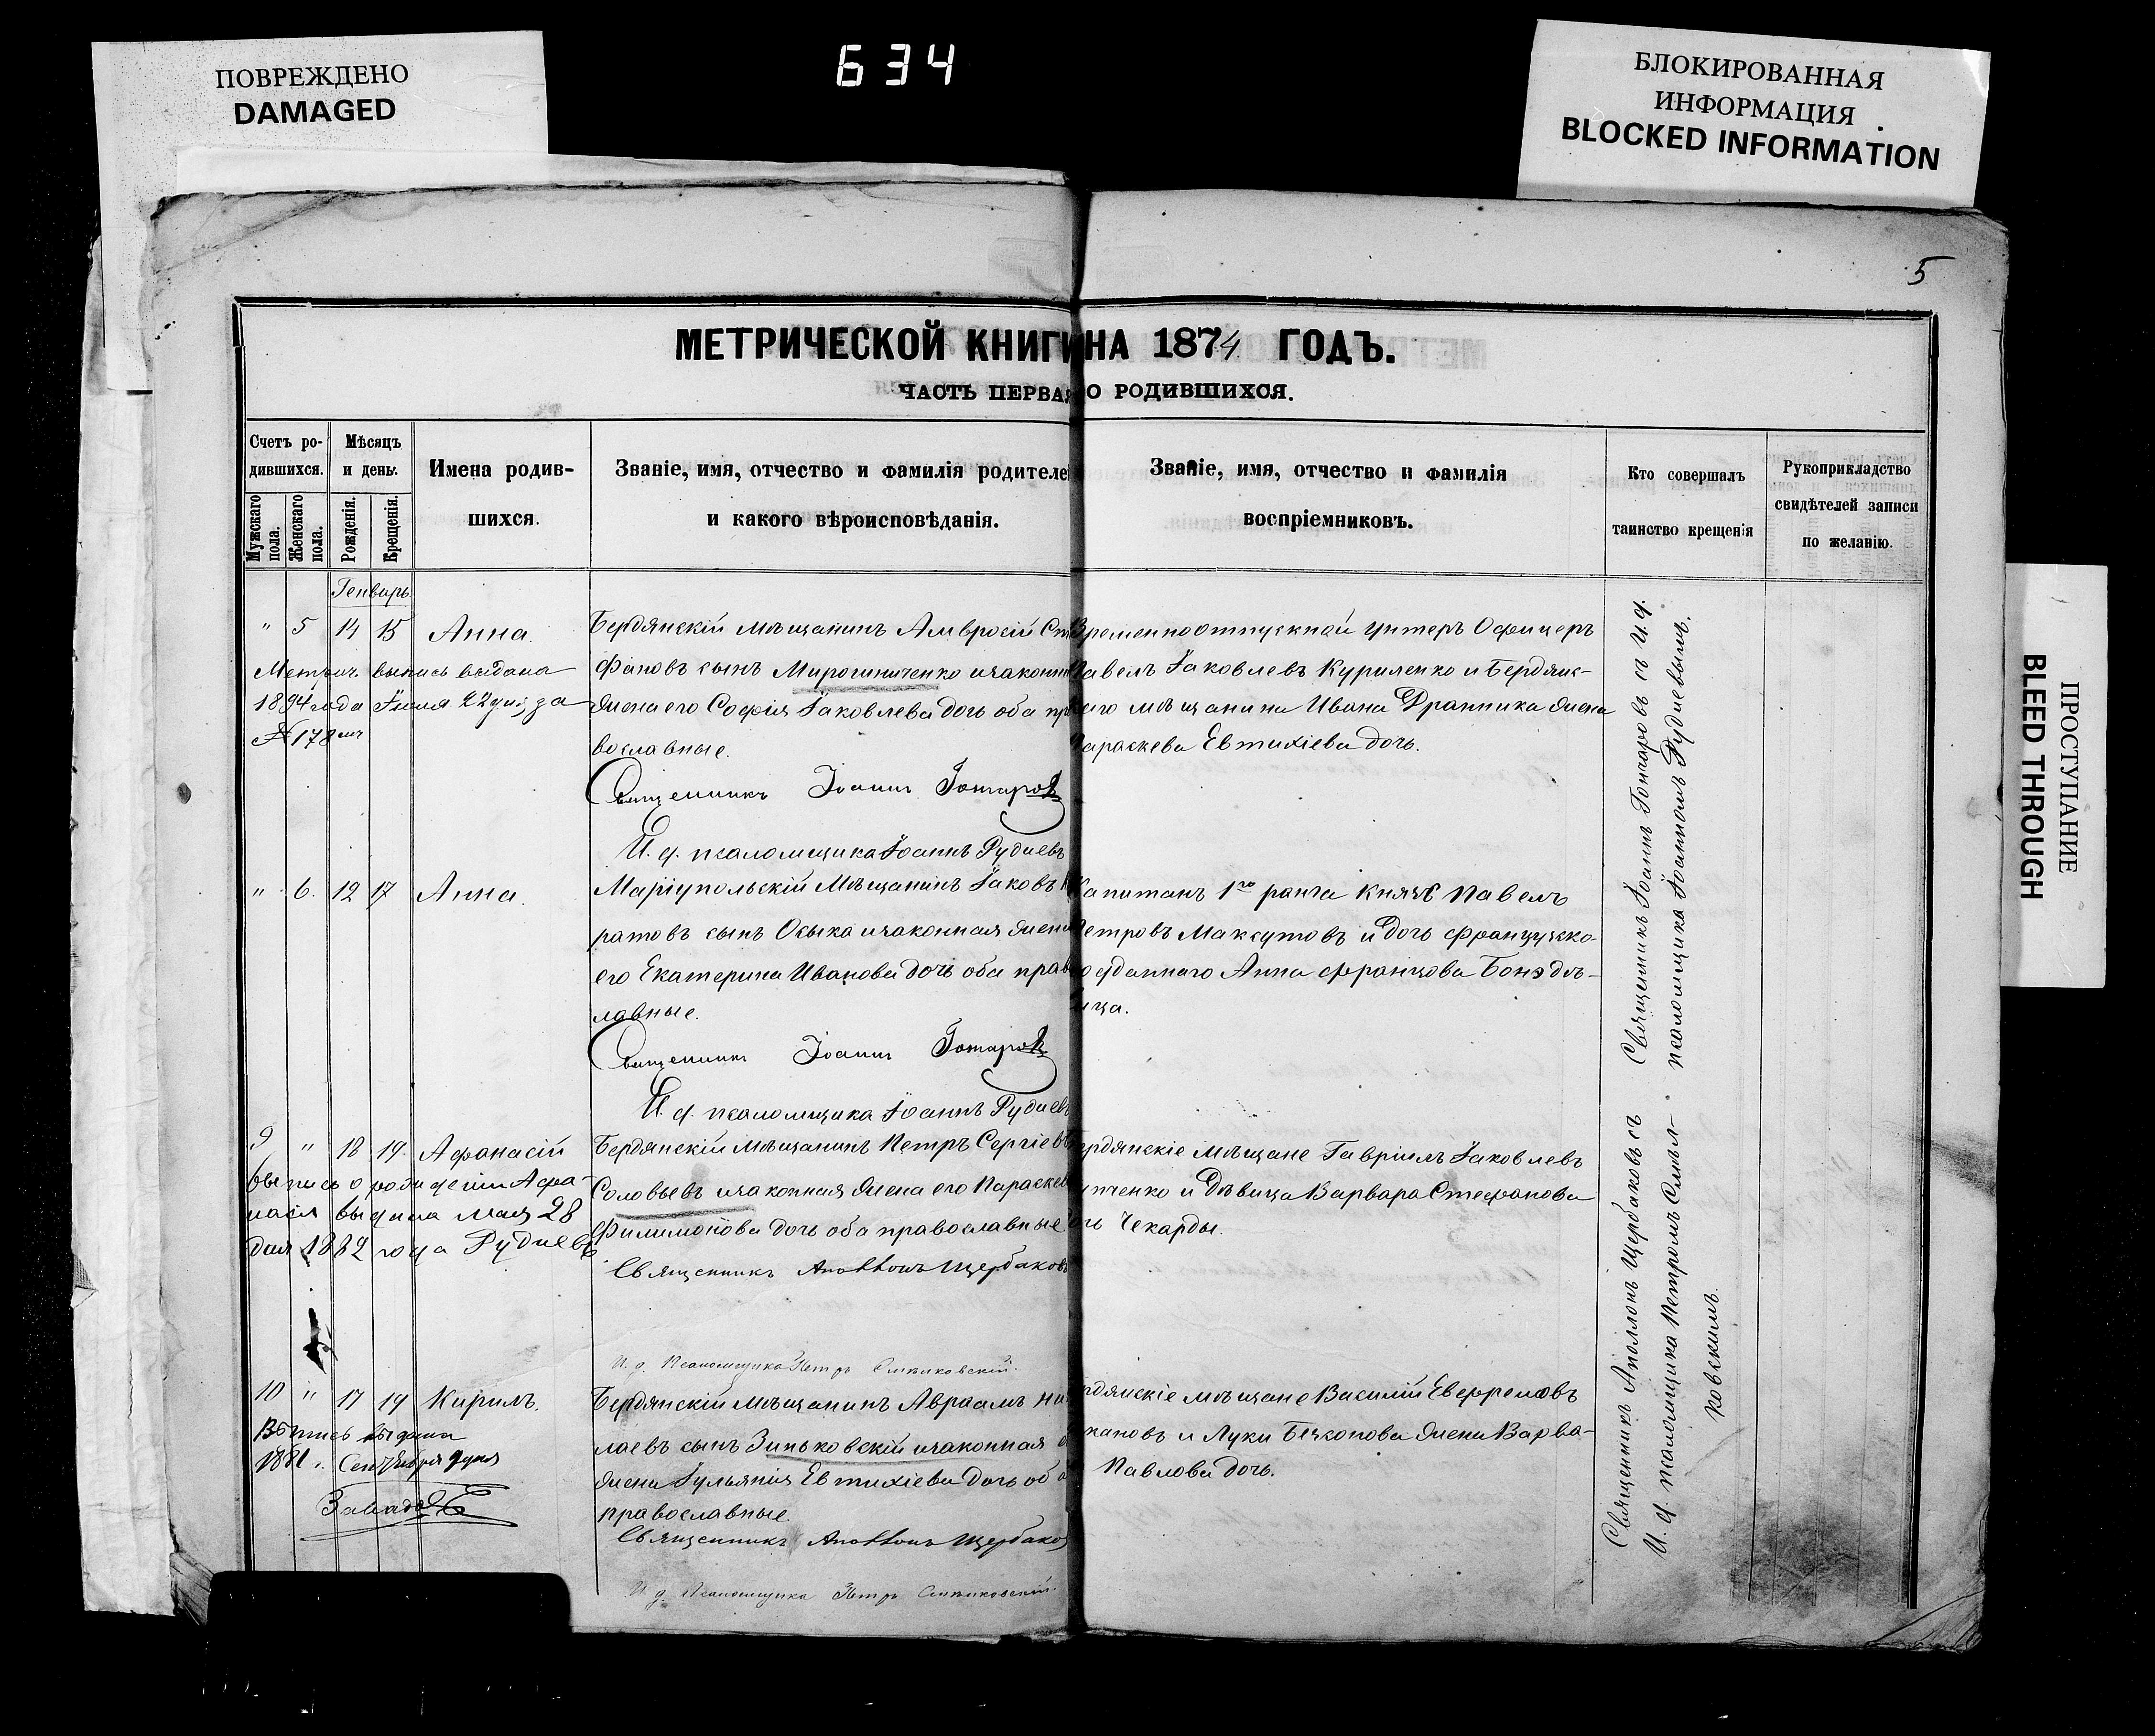 ПОВРЕЖДЕНО
DAMAGED
634
БЛОКИРОВАННАЯ
ИНФОРМАЦИЯ
BLOCKED INFORMATION
5
МЕТРИЧЕСКОЙ КНИГИ НА 1874 ГОДЪ.
ЧАСТЬ ПЕРВАЯ О РОДИВШИХСЯ.
Счетъ ро-
дившихся.
Мужскаго пола.
Женскаго пола.
Мѣсяцъ
и день.
Рожденія.
Крещенія.
Имена родив-
шихся.
Званіе, имя, отчество и фамилія родителе
и какого вѣроисповѣданія.
Званіе, имя, отчество и фамилія
воспріемниковъ.
Кто совершалъ
таинство крещенія
Рукоприкладство
свидѣтелей записи
по желанію.
Генварь
" 5 14 15 Анна.
Метрич. выпись выдана
1894 года Іюня 22 дня за
№ 178
Бердянскій мѣщанинъ Амвросій Сте
фановъ сынъ Мирошниченко и законн
жена его Софія Іаковлева дочь оба пра
вославные.
Священникъ Іоаннъ Гончаровъ
И. д. псаломщика Іоаннъ Рудиевъ
Временноотпускной унтеръ Офицеръ
Павелъ Іаковлевъ Куриленко и Бердянс-
каго мѣщанина Ивана Дранника жена
Параскева Евтихіева дочь.
" 6. 12 17 Анна.
Маріупольскій Мѣщанинъ Іаковъ
ратовъ сынъ Осыка и законная жена
его Екатерина Иванова дочь оба прав
лавные.
Священникъ Іоаннъ Гончаровъ
И. д. псаломщика Іоаннъ Рудиевъ
Капитанъ 1го ранга Князь Павелъ
Петровъ Максутовъ и дочь французско-
подданнаго Анна Францова Бонэ дѣ-
вица.
9 " 18 19. Афанасій
выпись о рождении Афа-
насія выдана мая 28
дня 1882 года Рудиевъ
Бердянскій мѣщанинъ Петръ Сергіевъ
Соловьевъ и законная жена его Параскев
Филимонова дочь оба православные
Священникъ Аполлонъ Щербаковъ
И. д. Псаломщика Петръ Смѣлковскій.
ердянскіе мѣщане Гавріилъ Іаковлевъ
нченко и дѣвица Варвара Стефанова
очь Чекарды.
10 " 17 19 Кирилъ.
Выпись выдана
1881. Сентября 9 дня
Бердянскій мѣщанинъ Авраамъ Ник
лаевъ сынъ Зиньковскій и законная
жена Іульянія Евтихіева дочь оба
православные.
Священникъ Аполлонъ Щербаков
И. д. Псаломщика Петръ Смѣлковскій.
рдянскіе мѣщане Василій
кановъ и Луки жена Варва-
Павлова дочь.
Священникъ Іоаннъ Гончаровъ съ И. д.
псаломщика Іоанномъ Рудиевымъ.
Священникъ Аполлонъ Щербаковъ съ
И. д. псаломщика Петромъ Смѣл-
ковскимъ.
ПРОСТУПАНИЕ
BLEED THROUGH